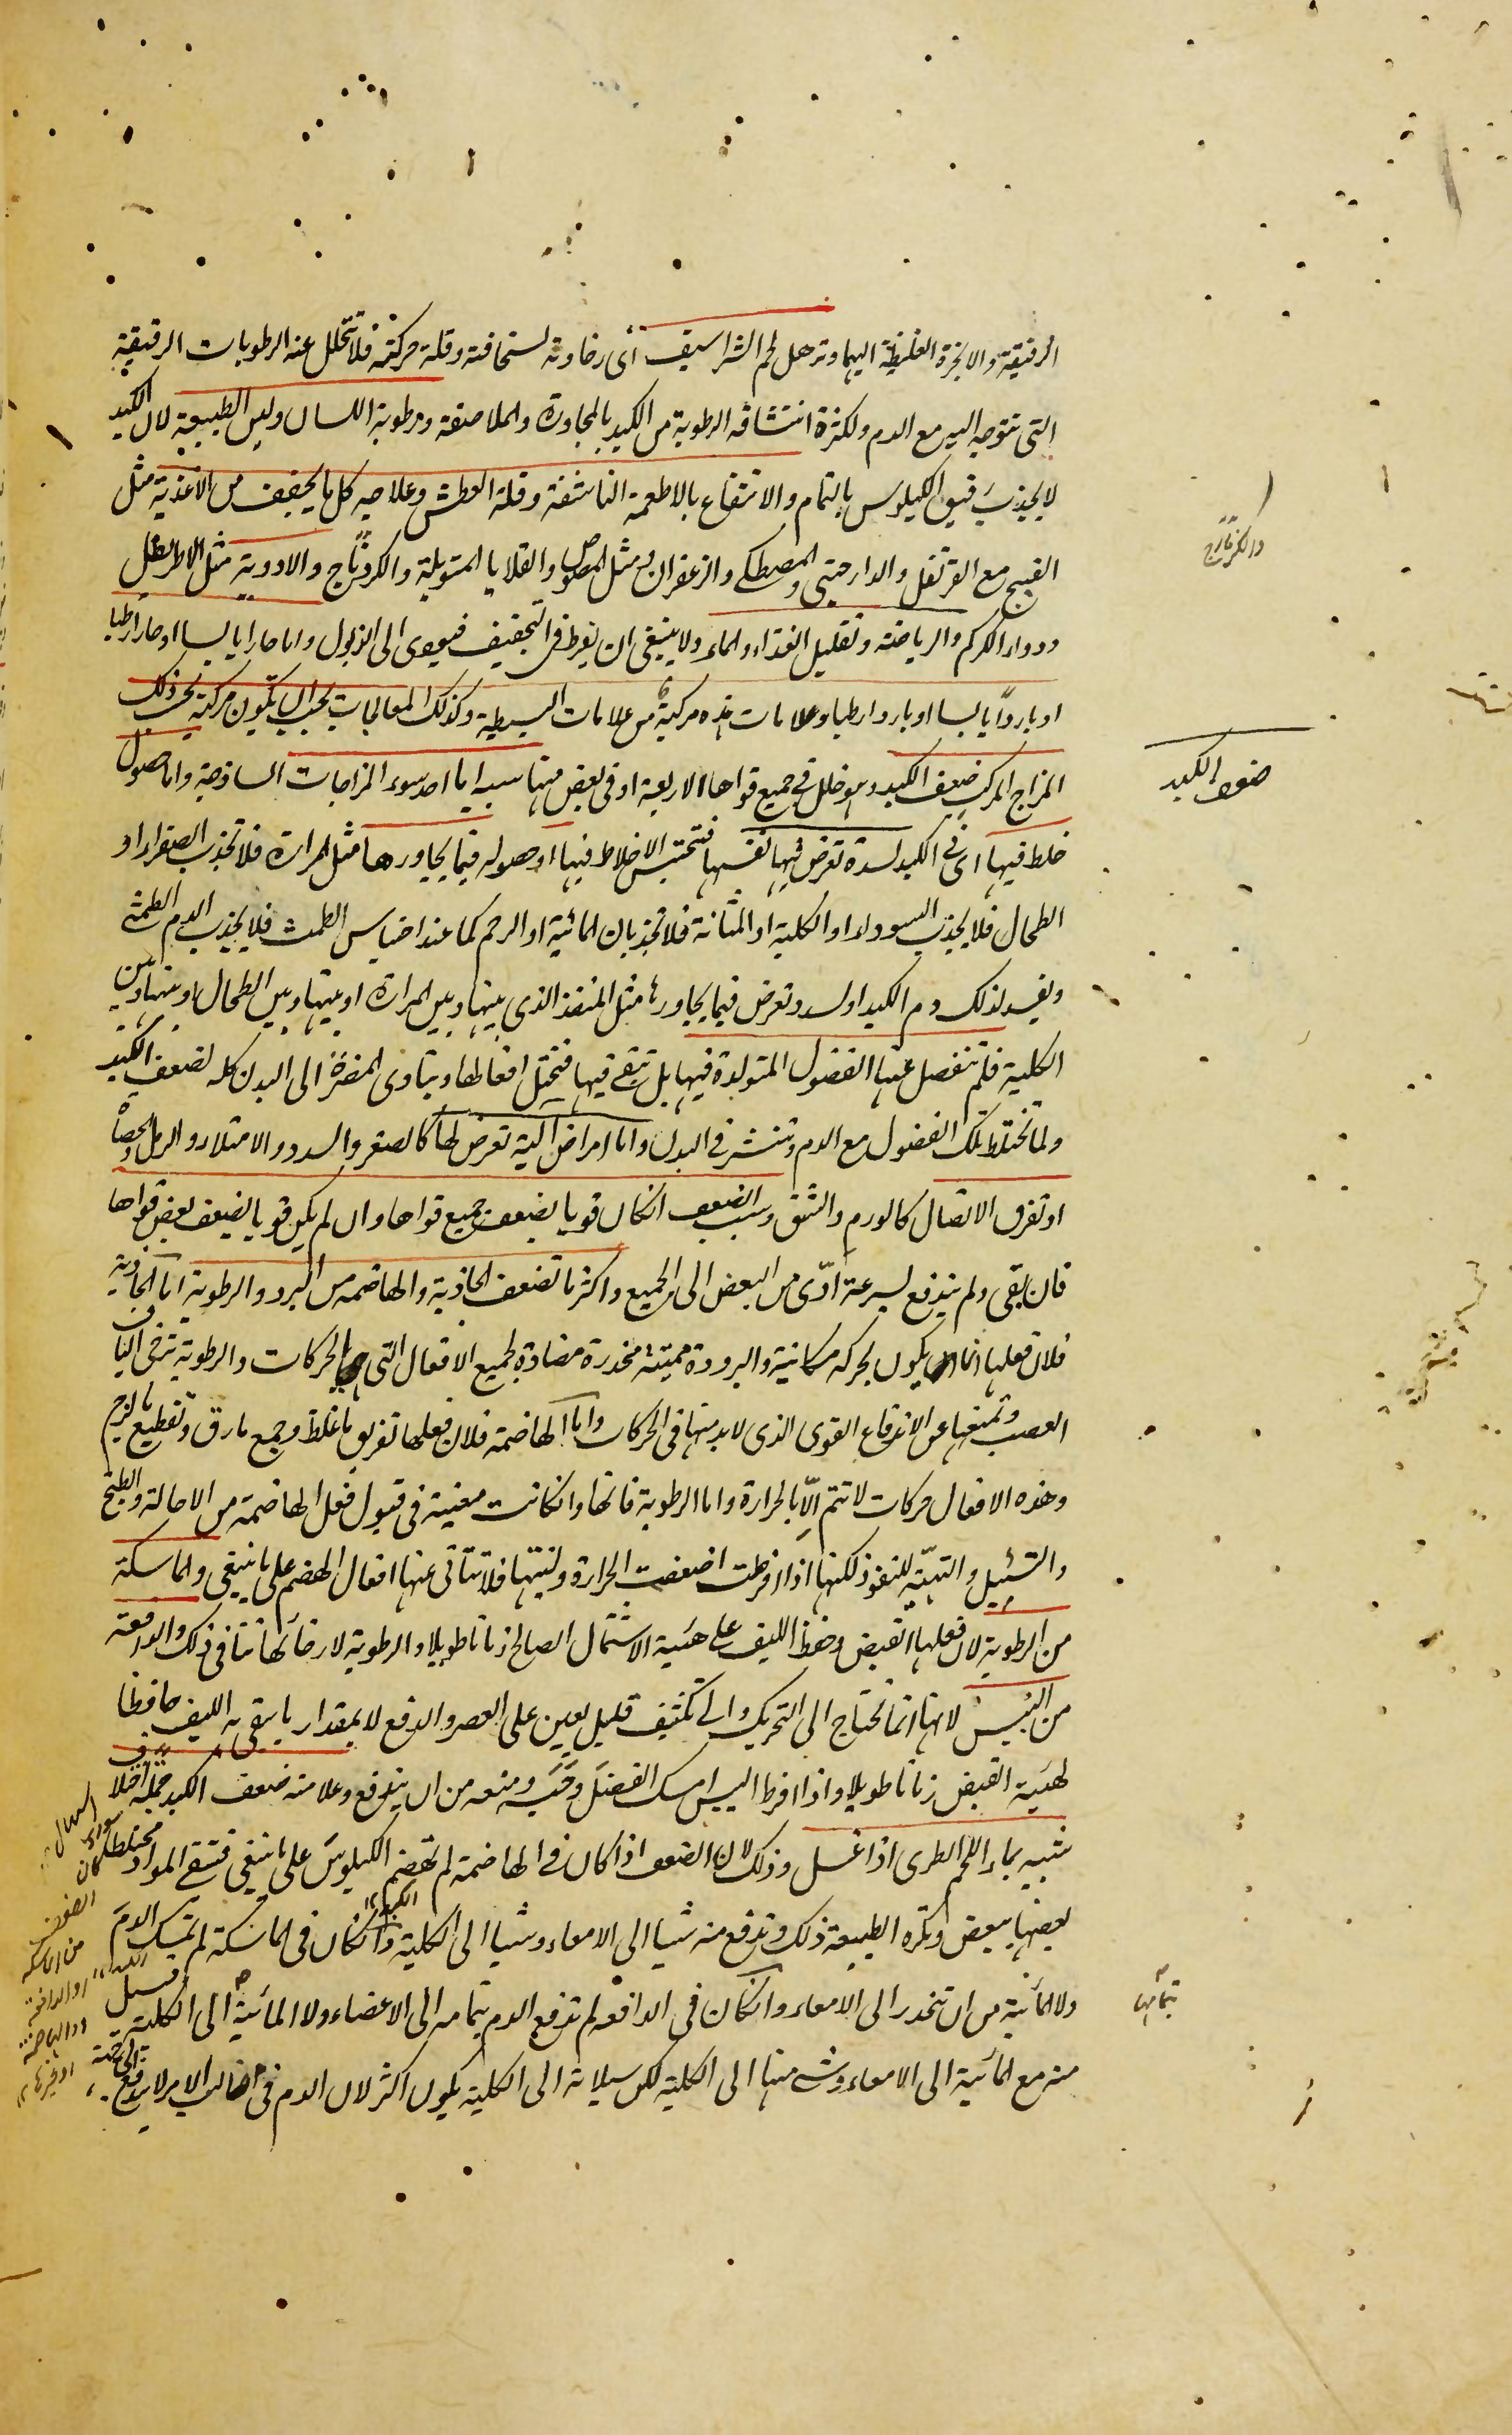 الرقيقة والابخرة الغليظة اليهما وترهل لحم الشراسيف أى رخاوته لسخافته وقلة حركته فلا تتحلل عنه الرطوبات الرقيقة
التى تتوجه اليه مع الدم ولكثرة انتشافه الرطوبة من الكبد بالمجاورة والملاصقة ورطوبة اللسان ولين الطبيعة لان الكبد
لا يجذب فيه الكيلوس بالتمام والانتفاع بالاطعمة الناشفة وقلة العطش وعلاجه كل ما يجفف من الاغذية مثل
القبج مع القرنفل والدارچينى والمصطكى والزعفران و مثل المصوص والقلايا المتوبلة والكردناج والادوية مثل الاطريفل
ودواء الكركم والرياضة وتقليل الغذاء والماء ولا ينبغى ان يفرط فى التجفيف فيودى الى الذبول واما حارا يابسا او حارا رطبا
او باردا يابسا او باردا رطبا وعلامات هذه مركبة من علامات البسيطة وكذلك المعالجات يجب ان يكون مركبة بحسب ذلك
المزاج المركب ضعف الكبد وهو خلل فى جميع قواها الاربعة او فى بعض منها سببه اما احد سوء المزاجات الساذجة واما حصول
خلط فيها اى فى الكبد لسدة تعرض فيها نفسها فتحتبس الاخلاط فيها او حصوله فيما يجاورها مثل المرارة فلا تجذب الصفراء او
الطحال فلا يجذب السوداء او الكلية او المثانة فلا تجذبان المائية او الرحم كما عند احتباس الطمث فلا يجذب الدم الطمثى
ويفسد لذلك دم الكبد او لسدد تعرض فيما يجاورها مثل المنفذ الذى بينها وبين المرارة او بينها وبين الطحال او بينها وبين
الكلية فلم تنفصل عنها الفضول المتولدة فيها بل تبقى فيها فتختل افعالها ويتادى المضرة الى البدن كله لضعف الكبد
ولما تختلط تلك الفضول مع الدم وتنتشر فى البدن واما امراض آلية تعرض لها كالصغر والسدد والامتلاء والرمل والحصاة
او تفرق الاتصال كالورم والشق وسبب الضعف ان كان قويا يضعف جميع قواها وان لم يكن قويا يضعف بعض قواها
فان بقى ولم يندفع بسرعة ادّى من البعض الى الجميع واكثر ما تضعف الجاذبة والهاضمة من البرد والرطوبة اما الجاذبة
فلان فعلها انما يكون بحركة مكانية والبرودة مميتة مخدرة مضادة لجميع الافعال التى بالحركات والرطوبة ترخى الياف
العصب وتمنعها عن الاندفاع القوى الذى لابد منها فى الحركات واما الهاضمة فلان فعلها تفريق ما غلظ وجمع ما رق وتقطيع ما لزج
وهذه الافعال حركات لا تتم الّا بالحرارة واما الرطوبة فانها وان كانت معينة فى قبول فعل الهاضمة من الاحالة والطبخ
والتسييل والتهيّة للنفوذ لكنها اذا افرطت اضعفت الحرارة ولينتها فلا تتاتى عنها افعال الهضم على ما ينبغى والماسكة
من الرطوبة لان فعلها القبض وحفظ الليف على هيئة الاشتمال الصالح زمانا طويلا والرطوبة لارخائها تنافى ذلك والدافعة
من اليبس لانها انما تحتاج الى التحريك والى تكثيف قليل يعين على العصر والدفع لا بمقدار ما يبقى به الليف حافظا
لهيئة القبض زمانا طويلا واذا افرط اليبس امسك الفضل وحبسه ومنعه من ان يندفع وعلامة ضعف الكبد جملة اختلاف
شبيه بماء اللحم الطرى اذا غسل وذلك لان الضعف اذا كان فى الهاضمة لم تهضم الكيلوس على ما ينبغى فتبقى المواد مختلطة
بعضها ببعض وتكره الطبيعة ذلك وتدفع منه شيا الى الامعاء وشيا الى الكلية وان كان فى الماسكة لم تمسك الدم
ولا المائية من ان تنحدر الى الامعاء وان كان فى الدافعة لم تدفع الدم بتمامه الى الاعضاء ولا المائية الى الكلية فيسيل
منه مع المائية الى الامعاء وشى منها الى الكلية لكن سيلانه الى الكلية يكون اكثر لان الدم فى غالب الامر لا يندفع
والكرناج
ضعف الكبد
بتمامها